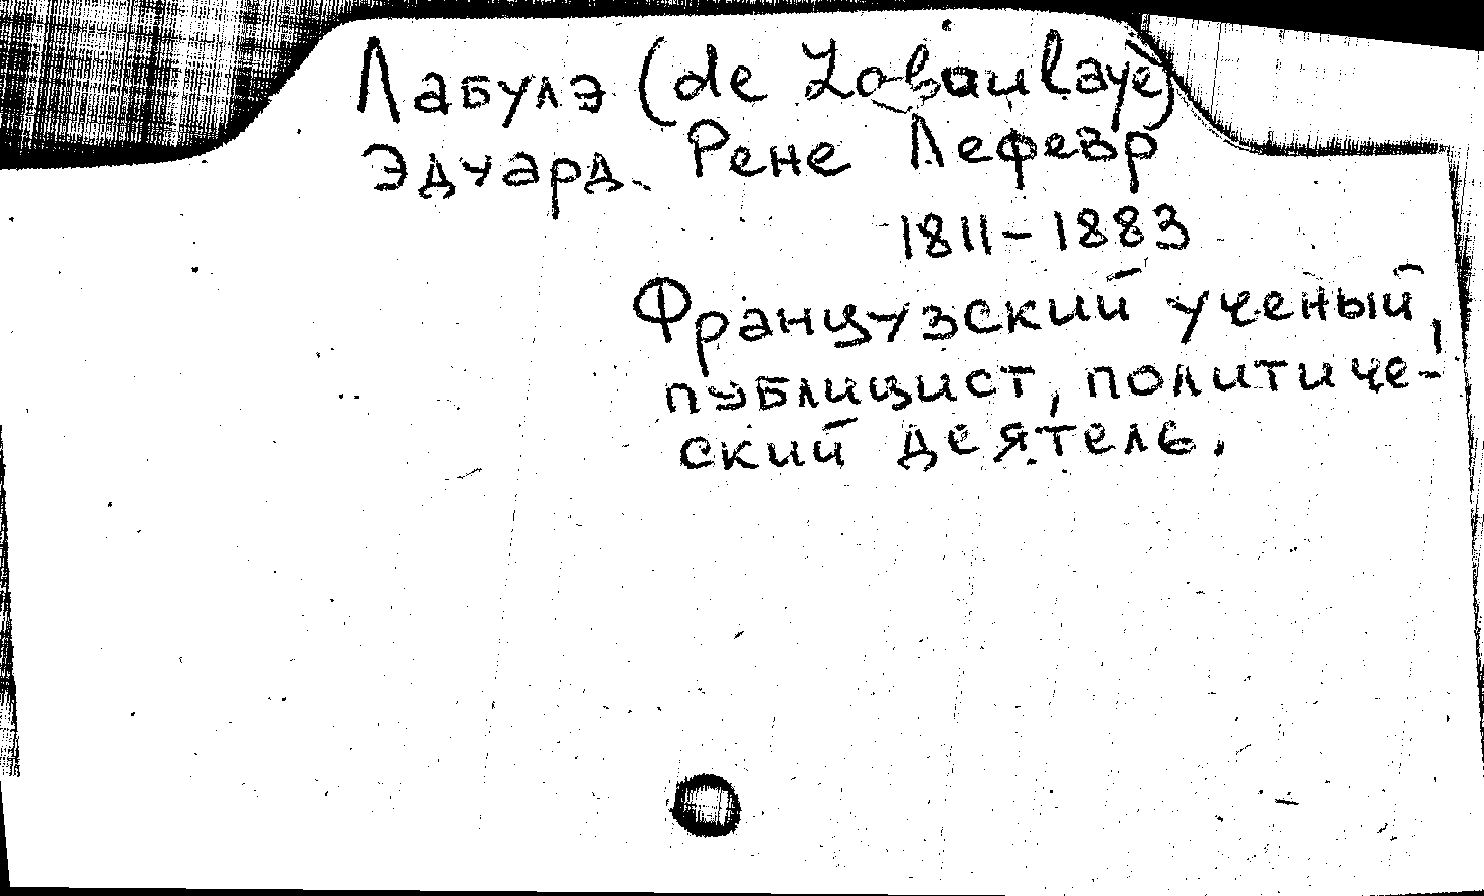 Лабулэ (de Laboulaye)
Эдуард Рене Лефевр
1811-1883
Французский ученый,
публицист, политиче-
ский деятель.